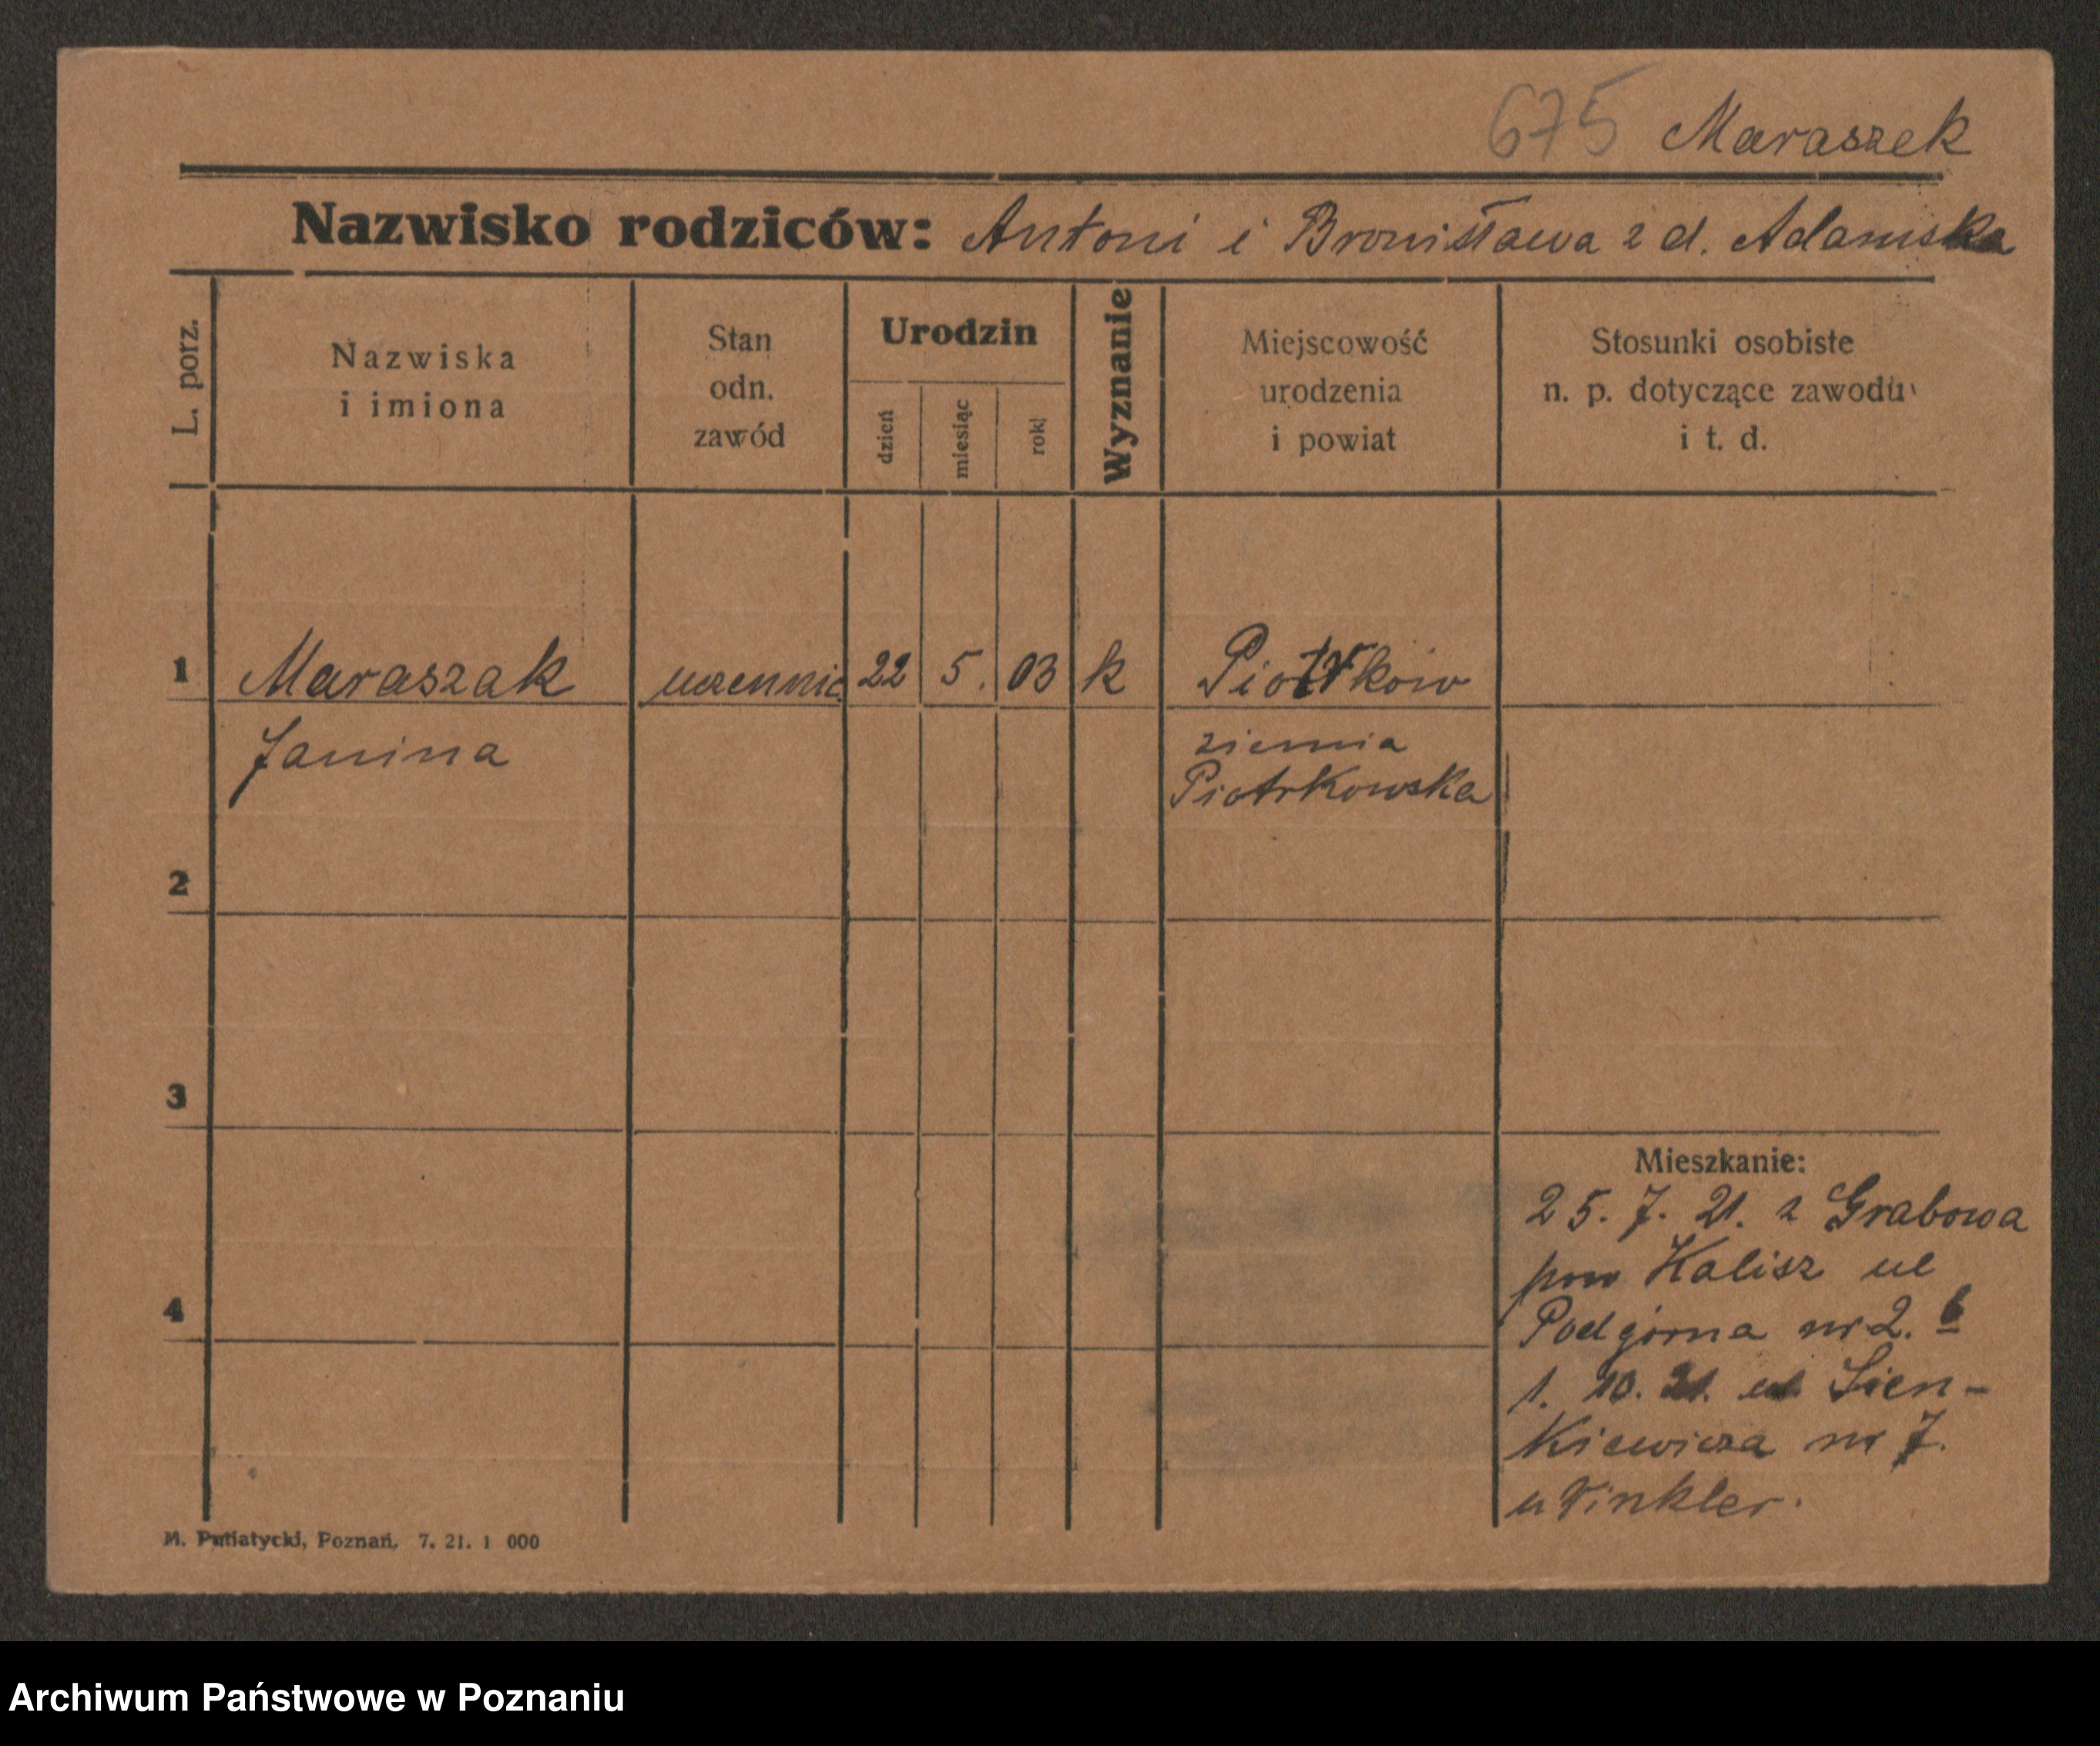 675 Maraszek
Nazwisko rodziców: Antoni i Bronisława z d. Adamska
L. porz.
Nazwiska
i imiona
Stan
odn.
zawód
Urodzin
dzień
miesiąc
rok
Wyznanie
Miejscowość
urodzenia
i powiat
Stosunki osobiste
n. p. dotyczące zawodu
i t. d.
1 Maraszak uczennic. 22 5. 03 k Piotrków
Janina ziemia
Piotrkowska
2
3
4
Mieszkanie:
25. 7. 21. z Grabowa
pow Kalisz ul
Podgórna nr 2.
1. 10. 21. ul Sien-
kiewicza nr 7.
u Vinkler.
M. Putiatycki, Poznań, 7. 21. 1 000
Archiwum Państwowe w Poznaniu